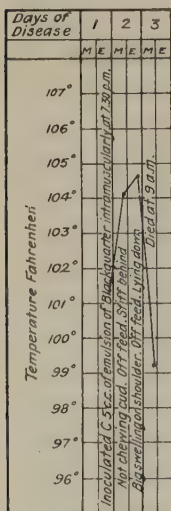 Days of
Disease
1 2 3
M E M E M E
107°
106°
105°
104°
103°
102°
101°
100°
99°
98°
97°
96°
Temperature Fahrenheit
Inoculated C 5 c.c. of emulsion of Blackquarter intramuscularly at 7.30 p.m.
Not chewing cud. Off feed. Stiff behind
Big swelling on shoulder. Off feed. Lying down
Died at 9 a.m.